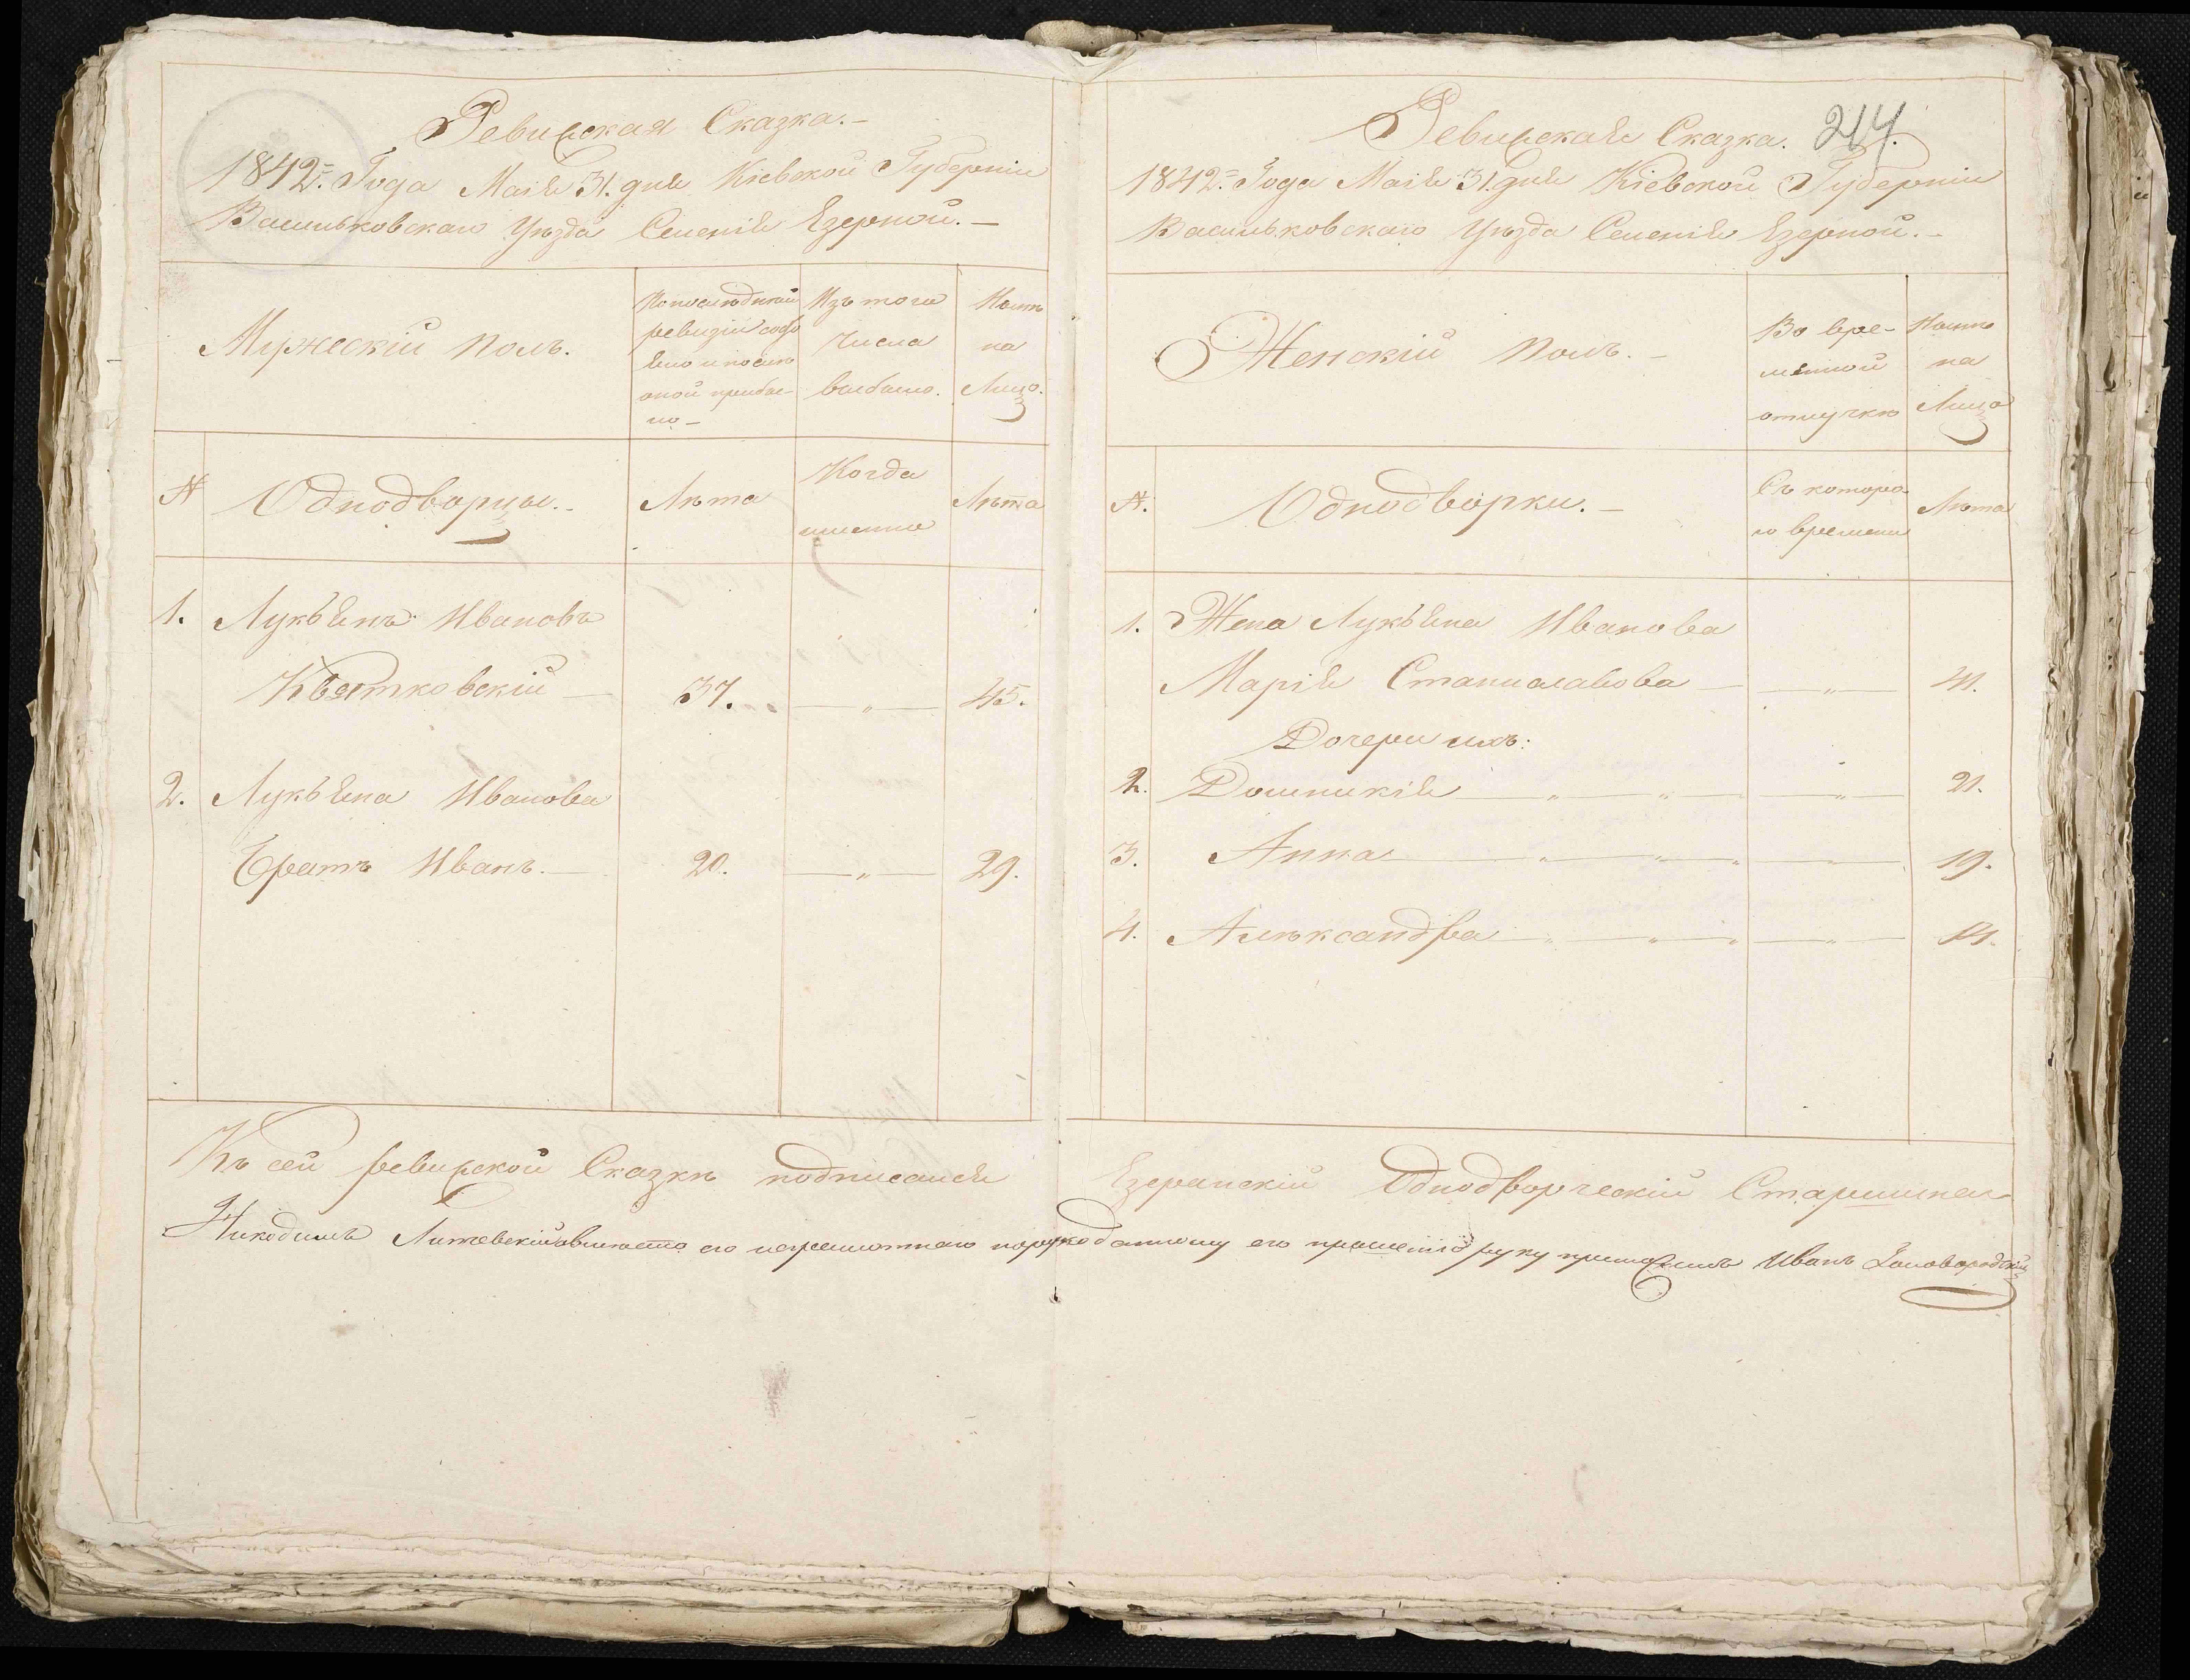 Ревизская Сказка.-
1842го. Года Маія 31. дня Кіевской Губерніи
Васильковскаго Уѣзда Селенія Езерной.-
Мужескій полъ.
По послѣдней
ревизіи состо
яло и послѣ
оной прибы-
ло-
Изъ того
числа
выбыло.
Нынѣ
на
Лицо.
№
Однодворцы.-
Лѣта
Когда
именно
Лѣта
1. Лукьянъ Ивановъ
Квятковскій — 37. — „ — 45.
2. Лукьяна Иванова
Братъ Иванъ.— 20. — „ — 29.
Къ сей ревизской Сказкѣ подписался
Ревизская Сказка. 214.
1842го. Года Маія 31. дня Кіевской Губерніи
Васильковскаго Уѣзда Селенія Езерной.-
Женскій полъ.-
Во вре-
менной
отлучкѣ
Нынѣ
на
Лицо
№.
Однодворки.-
Съ котора
го времени
Лѣта
1. Жена Лукьяна Иванова
Марія Станиславова — — „ — 41.
Дочери ихъ:
2. Доминикія — „ — „ — — „ — 21.
3. Анна — „ — „ — „ — „ — 19.
4. Александра — „ — „ — „ — „ — 14.
Езерянскій Однодворческій Старшина
Никодимъ Литовскій а вмѣсто его неграмотнаго по рукоданному его прошенію руку приложилъ Иванъ